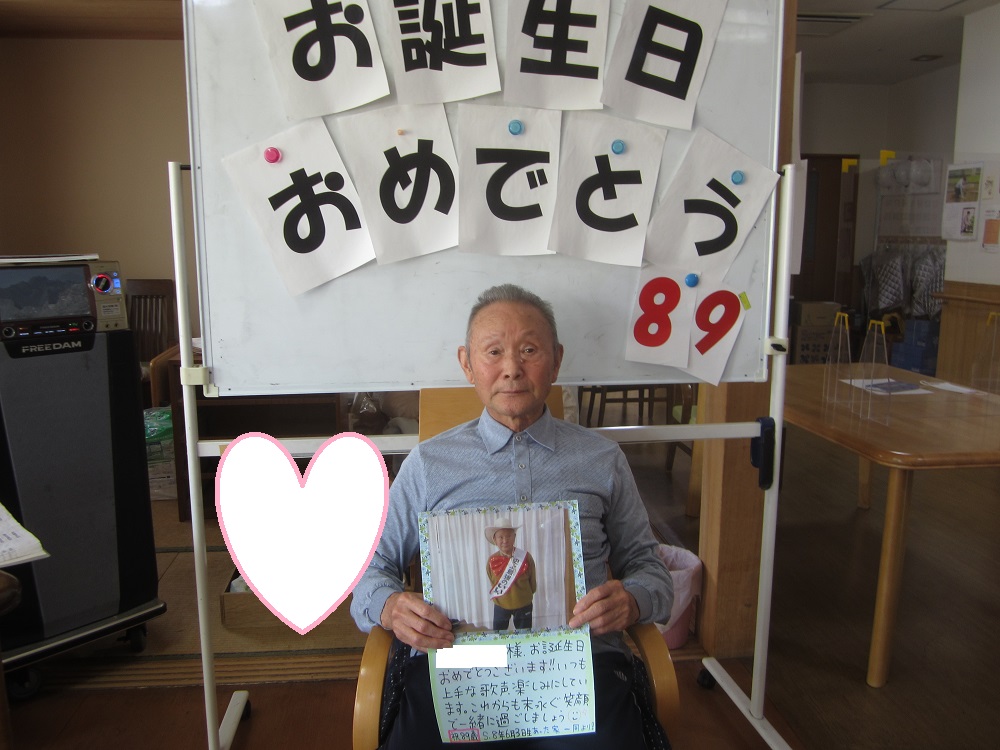 お誕生日
おめでとう
89
FREEDAM
様、お誕生日
おめでとうございます!!いつも
上手な歌声楽しみにしてい
ます。これからも末永ぐ笑顔
で一緒に過ごしましょう
祝89歳 S.8年6月3日生
一同より